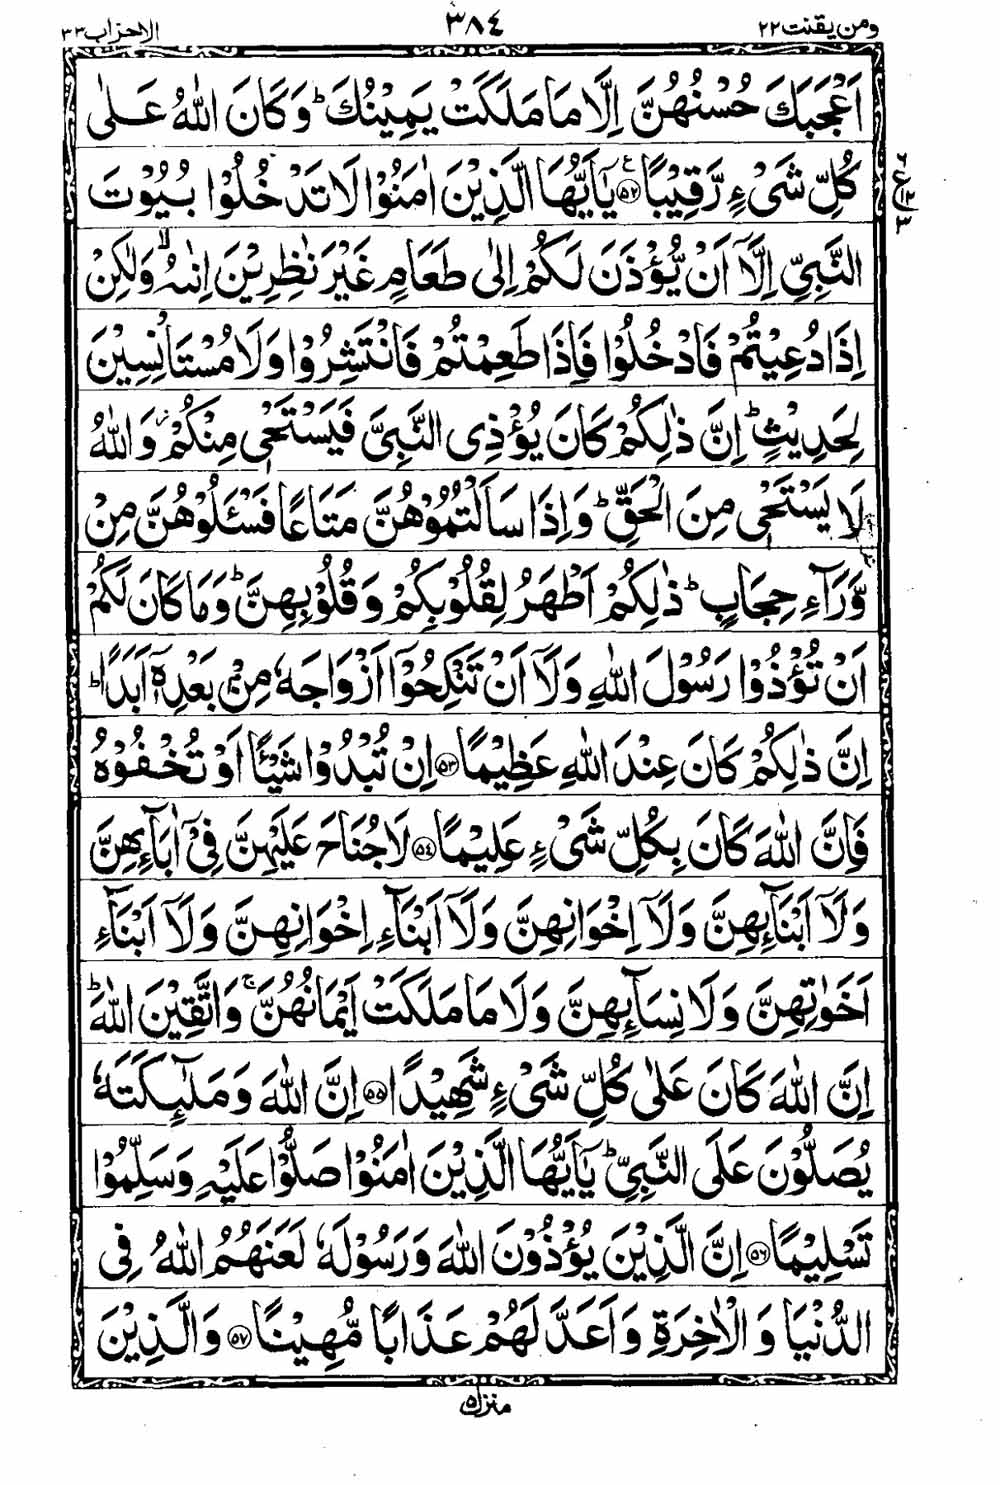 ومن يقنت ٢٢ ٣٨٤ الاحزاب ٣٣
اَعْجَبَكَ حُسْنُهُنَّ اِلَّا مَا مَلَكَتْ يَمِيْنُكَ ؕ وَكَانَ اللّٰهُ عَلٰى
كُلِّ شَىْءٍ رَّقِيْبًا ﴿۵۲﴾ ع يٰۤاَيُّهَا الَّذِيْنَ اٰمَنُوْا لَا تَدْخُلُوْا بُيُوْتَ
النَّبِىِّ اِلَّاۤ اَنْ يُّؤْذَنَ لَكُمْ اِلٰى طَعَامٍ غَيْرَ نٰظِرِيْنَ اِنٰىهُ ۙ وَلٰكِنْ
اِذَا دُعِيْتُمْ فَادْخُلُوْا فَاِذَا طَعِمْتُمْ فَانْتَشِرُوْا وَلَا مُسْتَاْنِسِيْنَ
لِحَدِيْثٍ ؕ اِنَّ ذٰلِكُمْ كَانَ يُؤْذِى النَّبِىَّ فَيَسْتَحْىٖ مِنْكُمْ ؗ وَاللّٰهُ
لَا يَسْتَحْىٖ مِنَ الْحَقِّ ؕ وَاِذَا سَاَلْتُمُوْهُنَّ مَتَاعًا فَسْـَٔلُوْهُنَّ مِنْ
وَّرَآءِ حِجَابٍ ؕ ذٰلِكُمْ اَطْهَرُ لِقُلُوْبِكُمْ وَقُلُوْبِهِنَّ ؕ وَمَا كَانَ لَكُمْ
اَنْ تُؤْذُوْا رَسُوْلَ اللّٰهِ وَلَاۤ اَنْ تَنْكِحُوْۤا اَزْوَاجَهٗ مِنْۢ بَعْدِهٖۤ اَبَدًا ؕ
اِنَّ ذٰلِكُمْ كَانَ عِنْدَ اللّٰهِ عَظِيْمًا ﴿۵۳﴾ اِنْ تُبْدُوْا شَيْـًٔا اَوْ تُخْفُوْهُ
فَاِنَّ اللّٰهَ كَانَ بِكُلِّ شَىْءٍ عَلِيْمًا ﴿۵٤﴾ لَا جُنَاحَ عَلَيْهِنَّ فِىْۤ اٰبَآئِهِنَّ
وَلَاۤ اَبْنَآئِهِنَّ وَلَاۤ اِخْوَانِهِنَّ وَلَاۤ اَبْنَآءِ اِخْوَانِهِنَّ وَلَاۤ اَبْنَآءِ
اَخَوٰتِهِنَّ وَلَا نِسَآئِهِنَّ وَلَا مَا مَلَكَتْ اَيْمَانُهُنَّ ۚ وَاتَّقِيْنَ اللّٰهَ ؕ
اِنَّ اللّٰهَ كَانَ عَلٰى كُلِّ شَىْءٍ شَهِيْدًا ﴿۵۵﴾ اِنَّ اللّٰهَ وَمَلٰٓئِكَتَهٗ
يُصَلُّوْنَ عَلَى النَّبِىِّ ؕ يٰۤاَيُّهَا الَّذِيْنَ اٰمَنُوْا صَلُّوْا عَلَيْهِ وَسَلِّمُوْا
تَسْلِيْمًا ﴿۵۶﴾ اِنَّ الَّذِيْنَ يُؤْذُوْنَ اللّٰهَ وَرَسُوْلَهٗ لَعَنَهُمُ اللّٰهُ فِى
الدُّنْيَا وَالْاٰخِرَةِ وَاَعَدَّ لَهُمْ عَذَابًا مُّهِيْنًا ﴿۵۷﴾ وَالَّذِيْنَ
منزل ۵